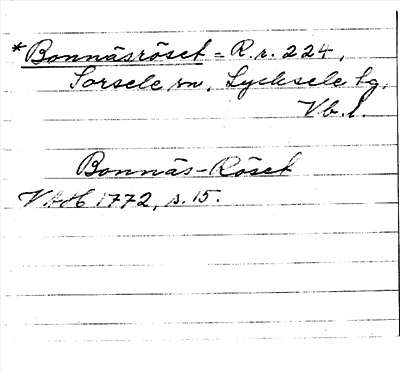 *Bonnäsröset = R.r. 224,
Sorsele sn, Lycksele tg,
Vb. l.
Bonnäs-Röset
VAH 1772, s. 15.